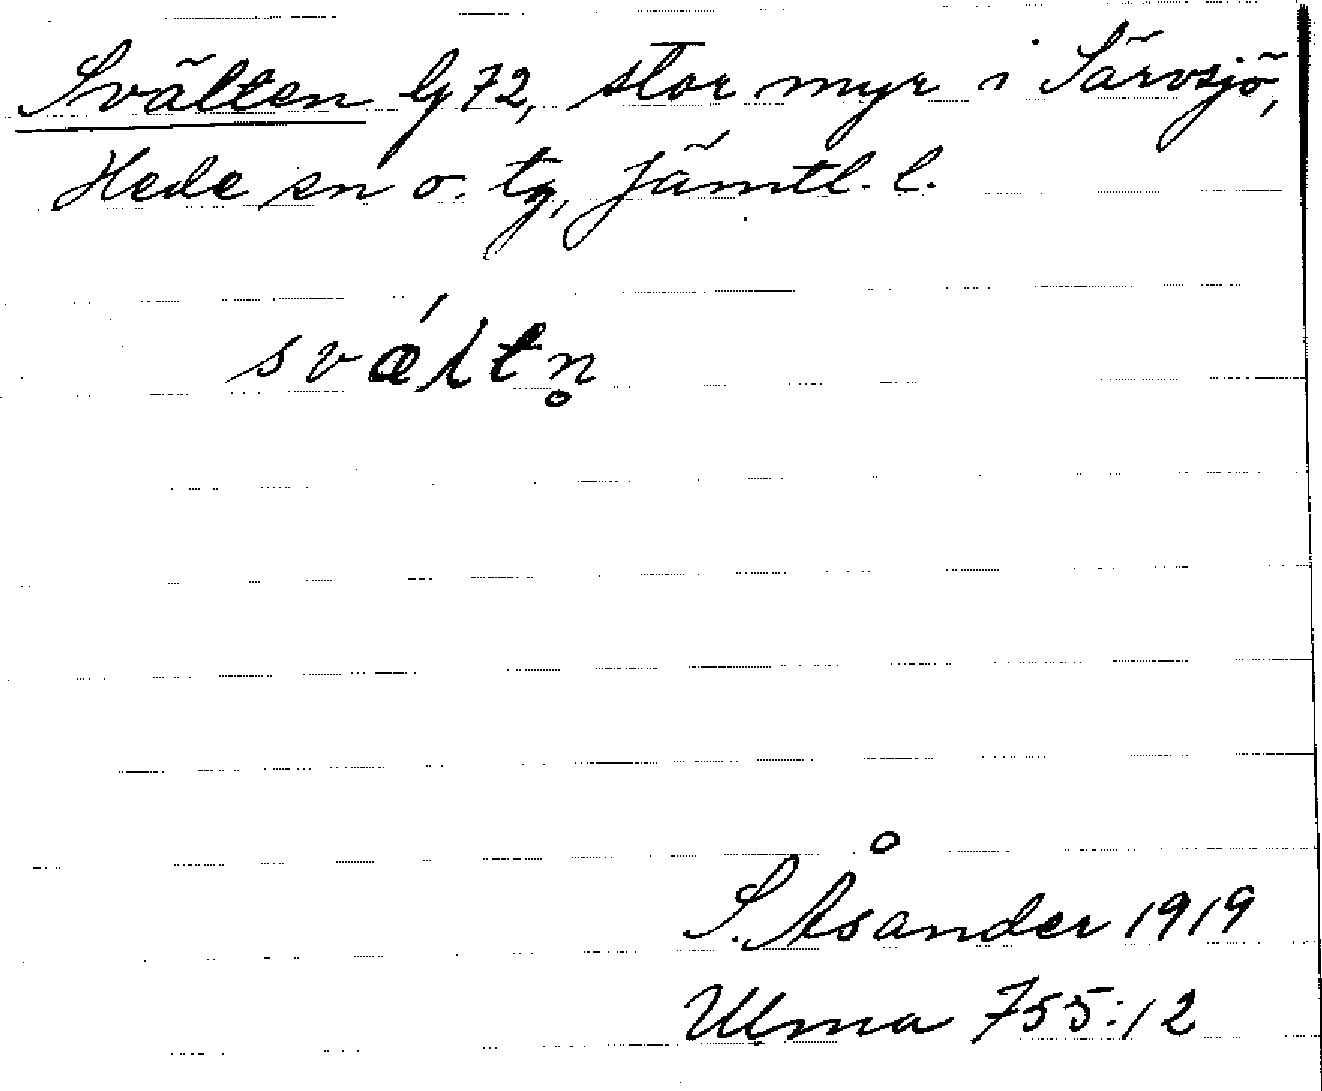 Svälten lg 72, stor myr i Särvsjö,
Hede sn o. tg, Jämtl. l.
svǽltn̥
S. Åsander 1919
Ulma 755:12